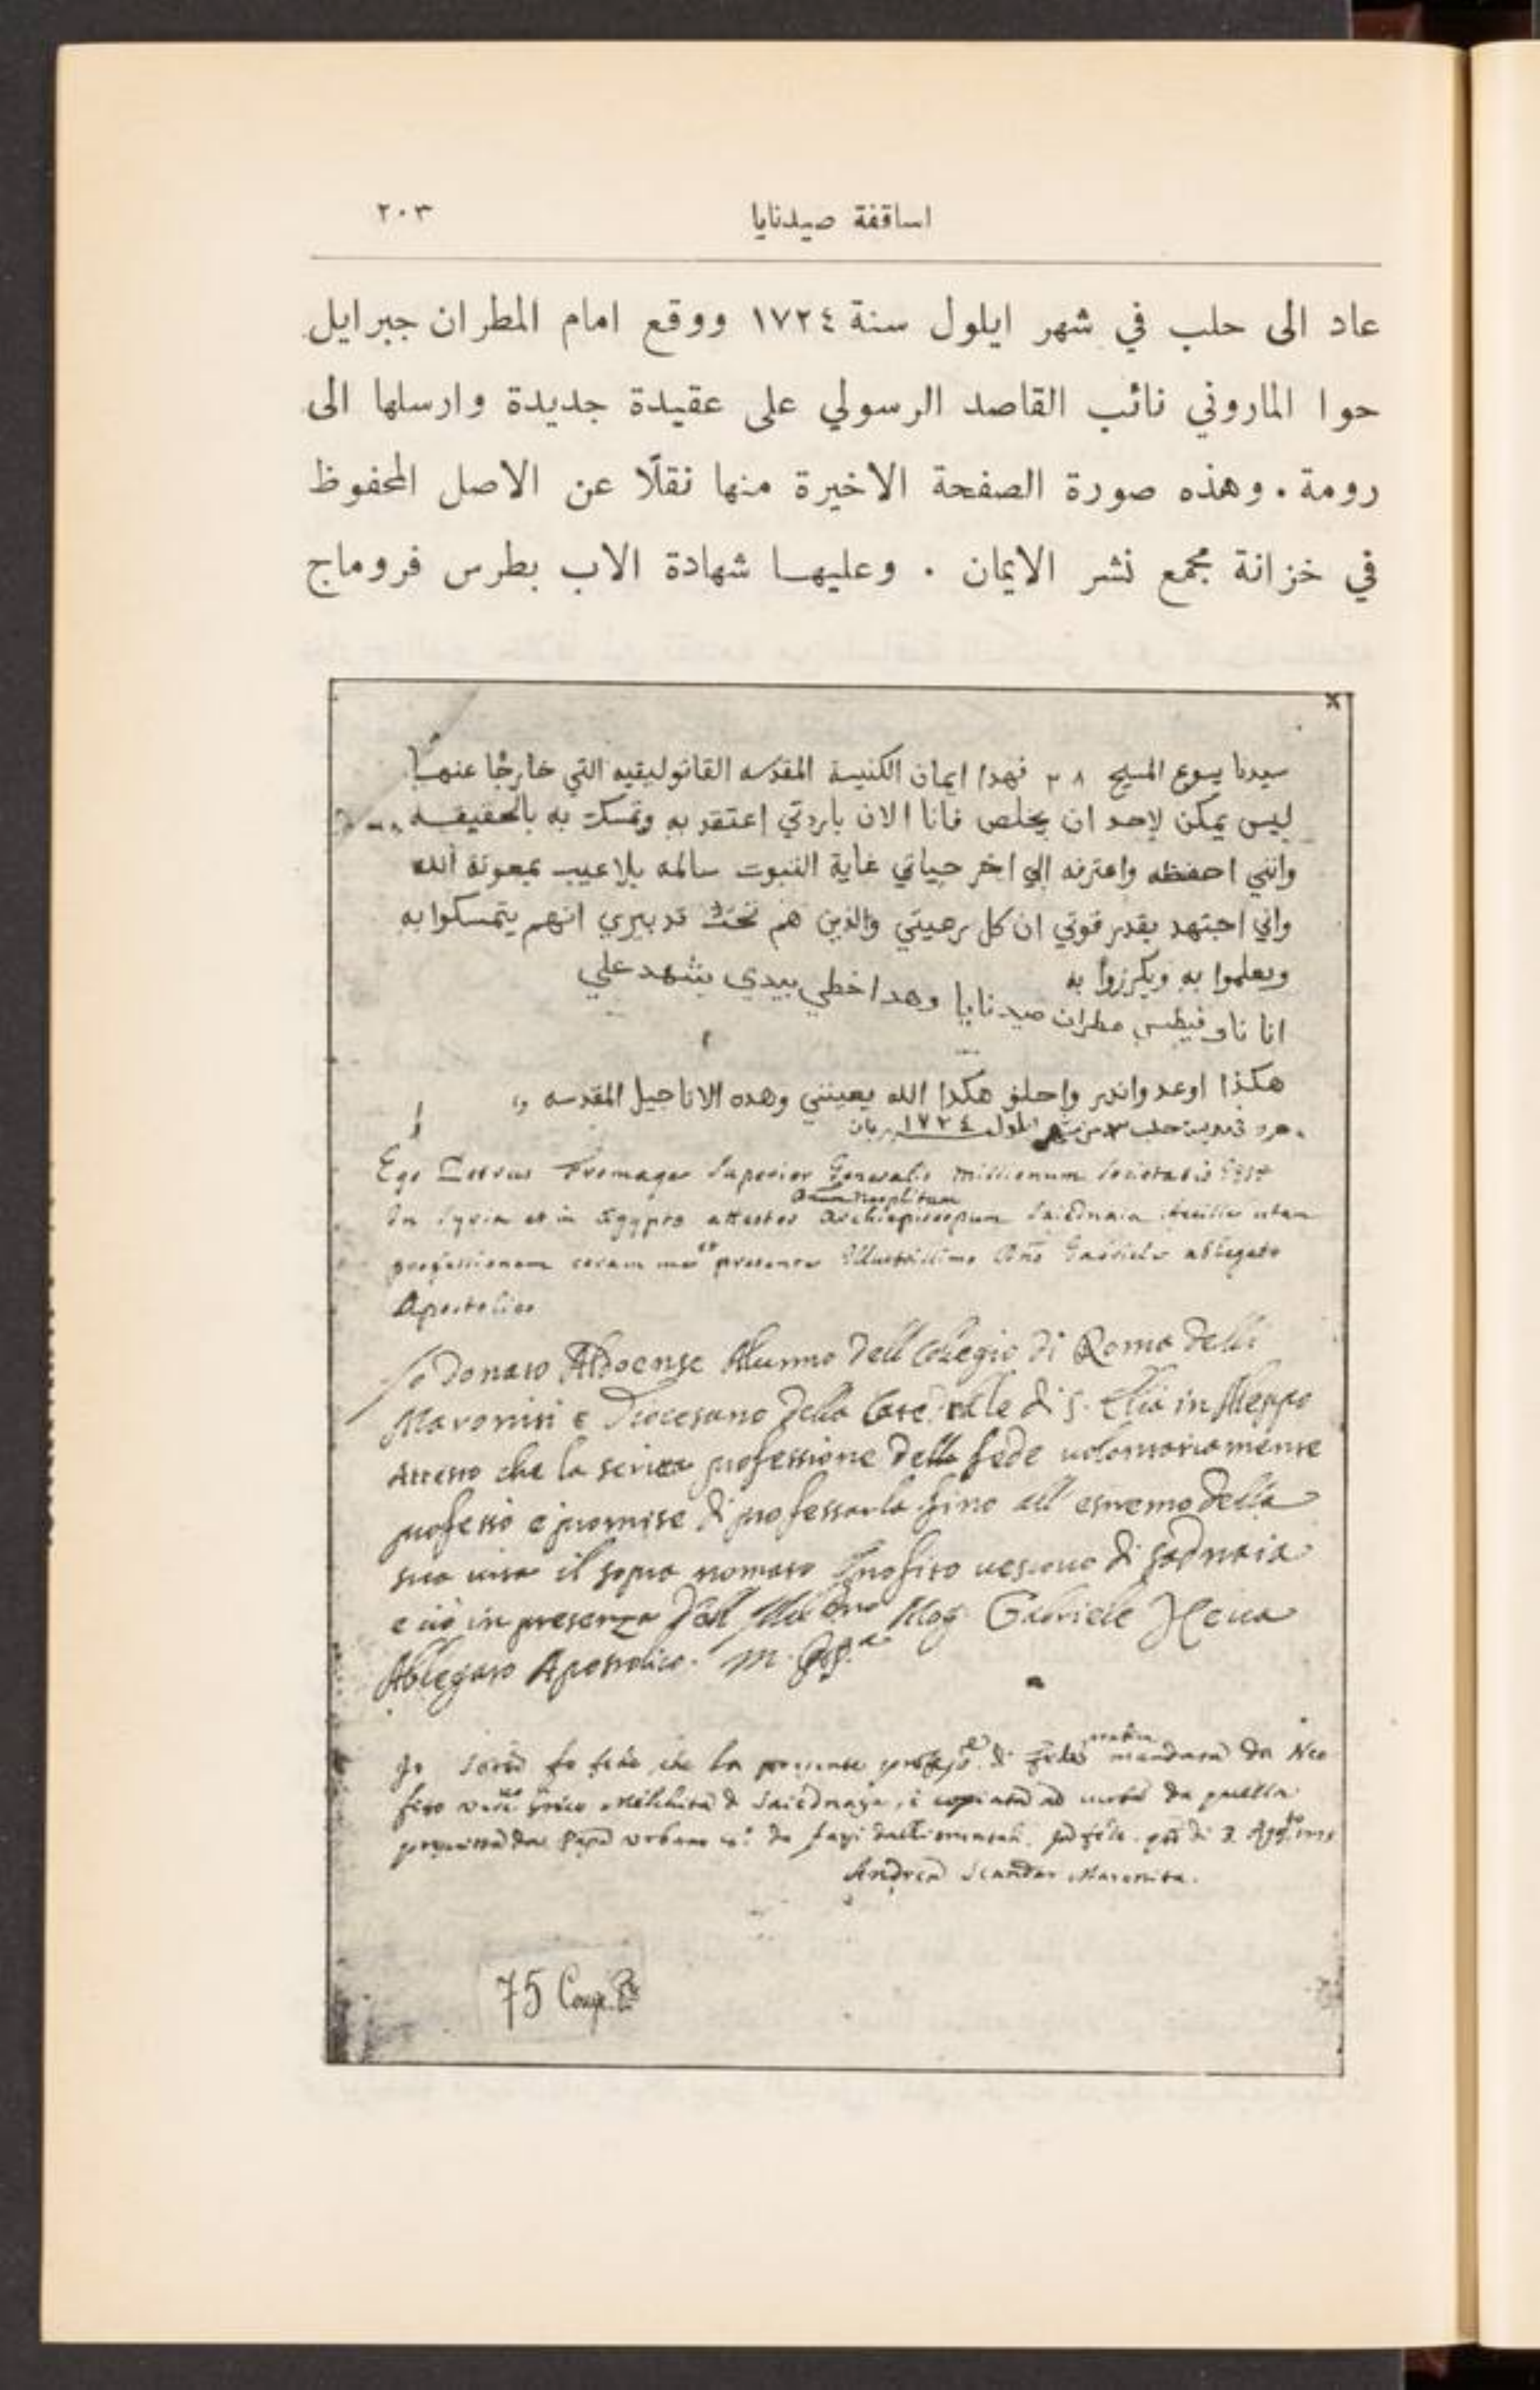 اساقفة صيدنايا
٢٠٣
عاد الى حلب في شهر ايلول سنة ١٧٢٤ ووقع امام المطران جبرايل
حوا الماروني نائب القاصد الرسولي على عقيدة جديدة وارسلها الى
رومة . وهذه صورة الصفحة الاخيرة منها نقلًا عن الاصل المحفوظ
في خزانة مجمع نشر الايمان . وعليهـا شهادة الاب بطرس فروماج
x
سيدنا يسوع المسيح فهدا ايمان الكنيسة المقدسه القاتوليقيه التي خارجًا عنها
ليس يمكن لاحد ان يخلص فانا الان باردتي اعتقد به وتمسكت به بالحقيقه
وانني احفظه واعترفه الي اخر حياتي غاية الثبوت سالمه بلا عيب بمعونة الله
واني اجتهد بقدر قوتي ان كل رعيتي والذين هم تحت تدبيري انهم يتمسكوا به
ويعلموا به ويكرزوا به
انا ناوفيطس مطران صيدنايا وهدا خطي بيدي يشهد علي
هكذا اوعد واندر واحلف هكدا الله يعينني وهده الاناجيل المقدسه
حلب ايلول ١٧٢٤
Ego Petrus Fromage Superior Generalis missionum Societatis
Neophitum
In Syria et in Ægypto attestor Archiepiscopum Saidnaia
professionem coram me et presente Illustrissimo Dno Gabriele ablegato
Apostolico
Io Donato Alunno dell Collegio di Roma delli
Maroniti e Diocesano della Catedrale di S. Elia in Aleppo
Attesto che la scritta professione della fede volontariamente
professò e promise di professarla fino all estremo della
sua vita il sopra nomato Neofito vescovo di Sadnaia
e ciò in presenza dell Mog Gabriele Heua
Ablegato Apostolico.
Io fo fede che la presente di mandata da Neo
fito Melchita di Saidnaya, è copiata ad da quella
da Papa Urbano
Andrea Scandar Maronita.
75 Cong.